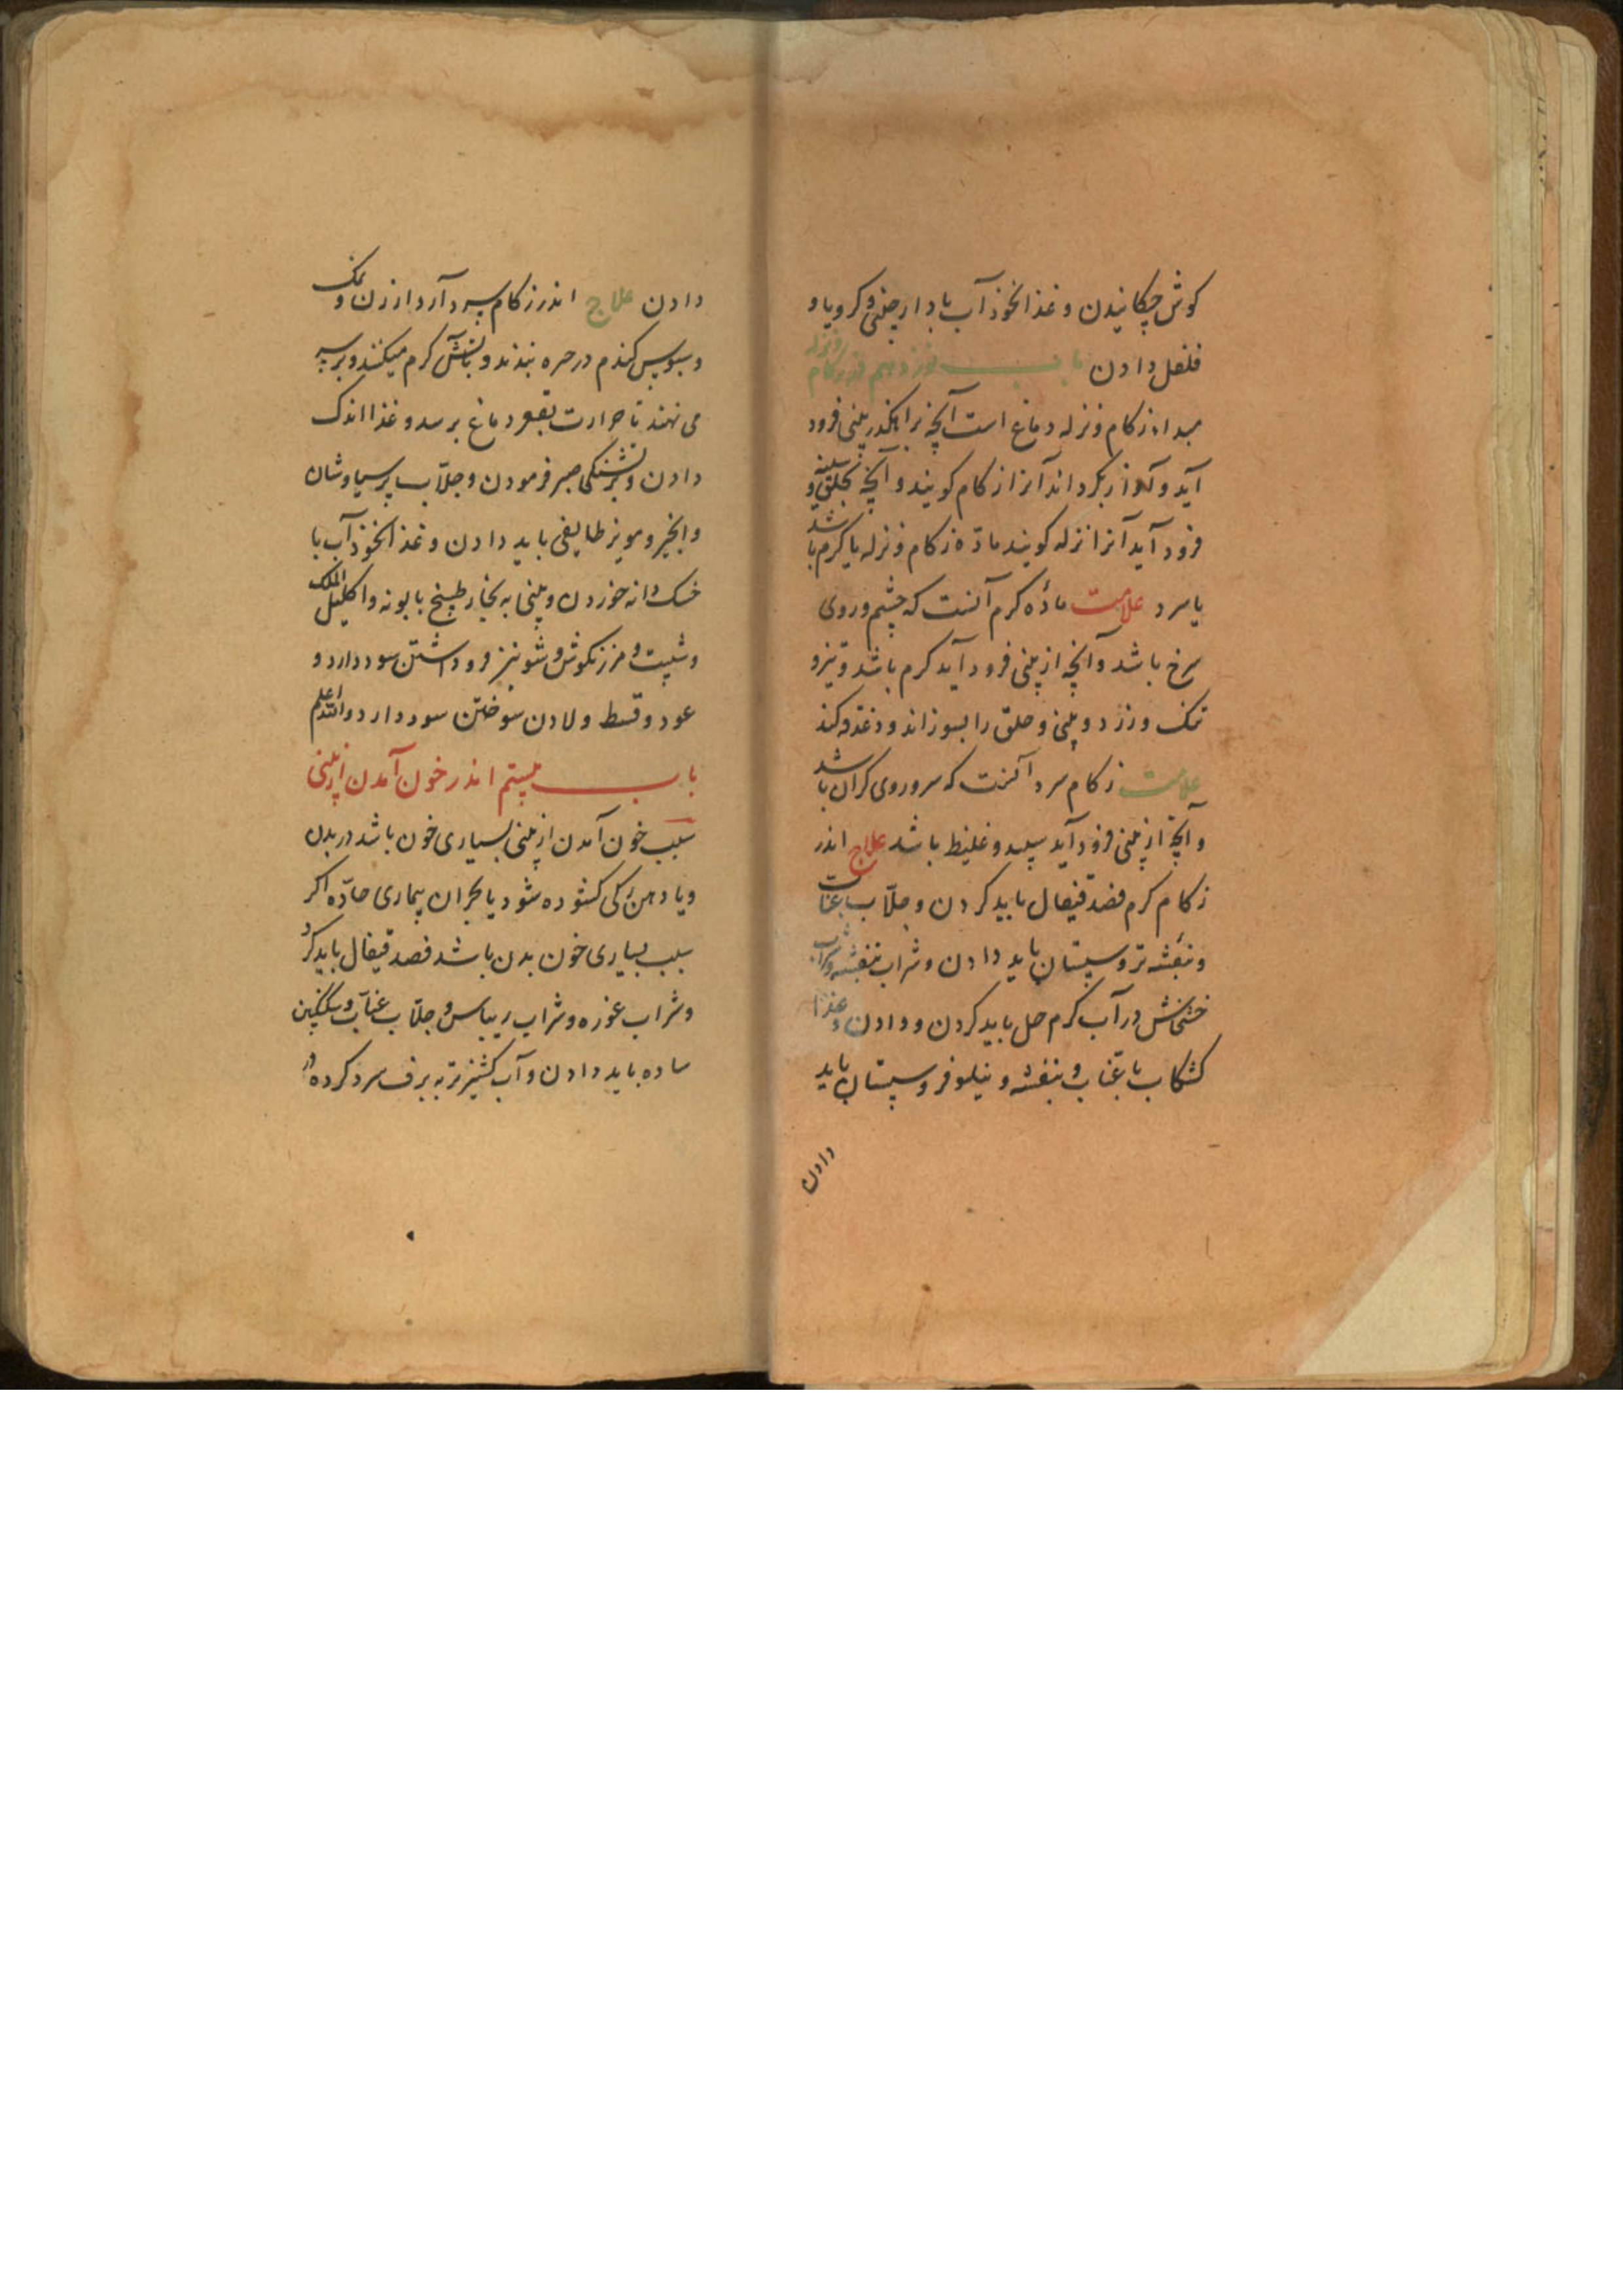 کوش چکانیدن و غذا نخود آب با دارچینی و کرویا و
فلفل دادن باب نوزدهم اندر زکام و نزله
مبداء زکام و نزله دماغ است آنچه بر راهکذر بینی فرود
آید و آواز بکرداند آنرا زکام کویند و آنچه بحلق و سینه
فرود آید آنرا نزله کویند مادّه زکام و نزله یا کرم باشد
یا سرد علامت مادّه کرم آنست که چشم و روی
سرخ باشد و آنچه از بینی فرود آید کرم باشد و تیز و
تنک و زرد و بینی و حلق را بسوزاند و دغدغه کند
علامت زکام سرد آنست که سر و روی کران باشد
و آنچه از بینی فرود آید سپید و غلیظ باشد علاج اندر
زکام کرم فصد قیفال باید کردن و جلّاب بعنّاب
و بنفشه تر و سپستان باید دادن و شراب بنفشه و شراب
خشخاش در آب کرم حل باید کردن و دادن و غذا
کشکاب با عنّاب و بنفشه و نیلوفر و سپستان باید
دادن
دادن علاج اندر زکام سرد آرد ارزن و نمک
و سبوس کندم در صره بندند و بآتش کرم میکنند و بر سر
می نهند تا حرارت بقعر دماغ برسد و غذا اندک
دادن و بر تشنکی صبر فرمودن و جلّاب پرسیاوشان
و انجیر و مویز طایفی باید دادن و غذا نخود آب با
خسک دانه خوردن و بینی به بخار طبیخ بابونه و اکلیل الملک
و شبت و مرزنکوش و شونیز فرو داشتن سود دارد و
عود و قسط و لادن سوختن سود دارد والله اعلم
باب بیستم اندر خون آمدن از بینی
سبب خون آمدن از بینی بسیاری خون باشد در بدن
و یا دهن رکی کشوده شود یا بحران بیماری حادّه اکر
سبب بسیاری خون بدن باشد فصد قیفال باید کرد
و شراب غوره و شراب ریباس و جلّاب عنّاب و سکنجبین
ساده باید دادن و آب کشنیز تر به برف سرد کرده در